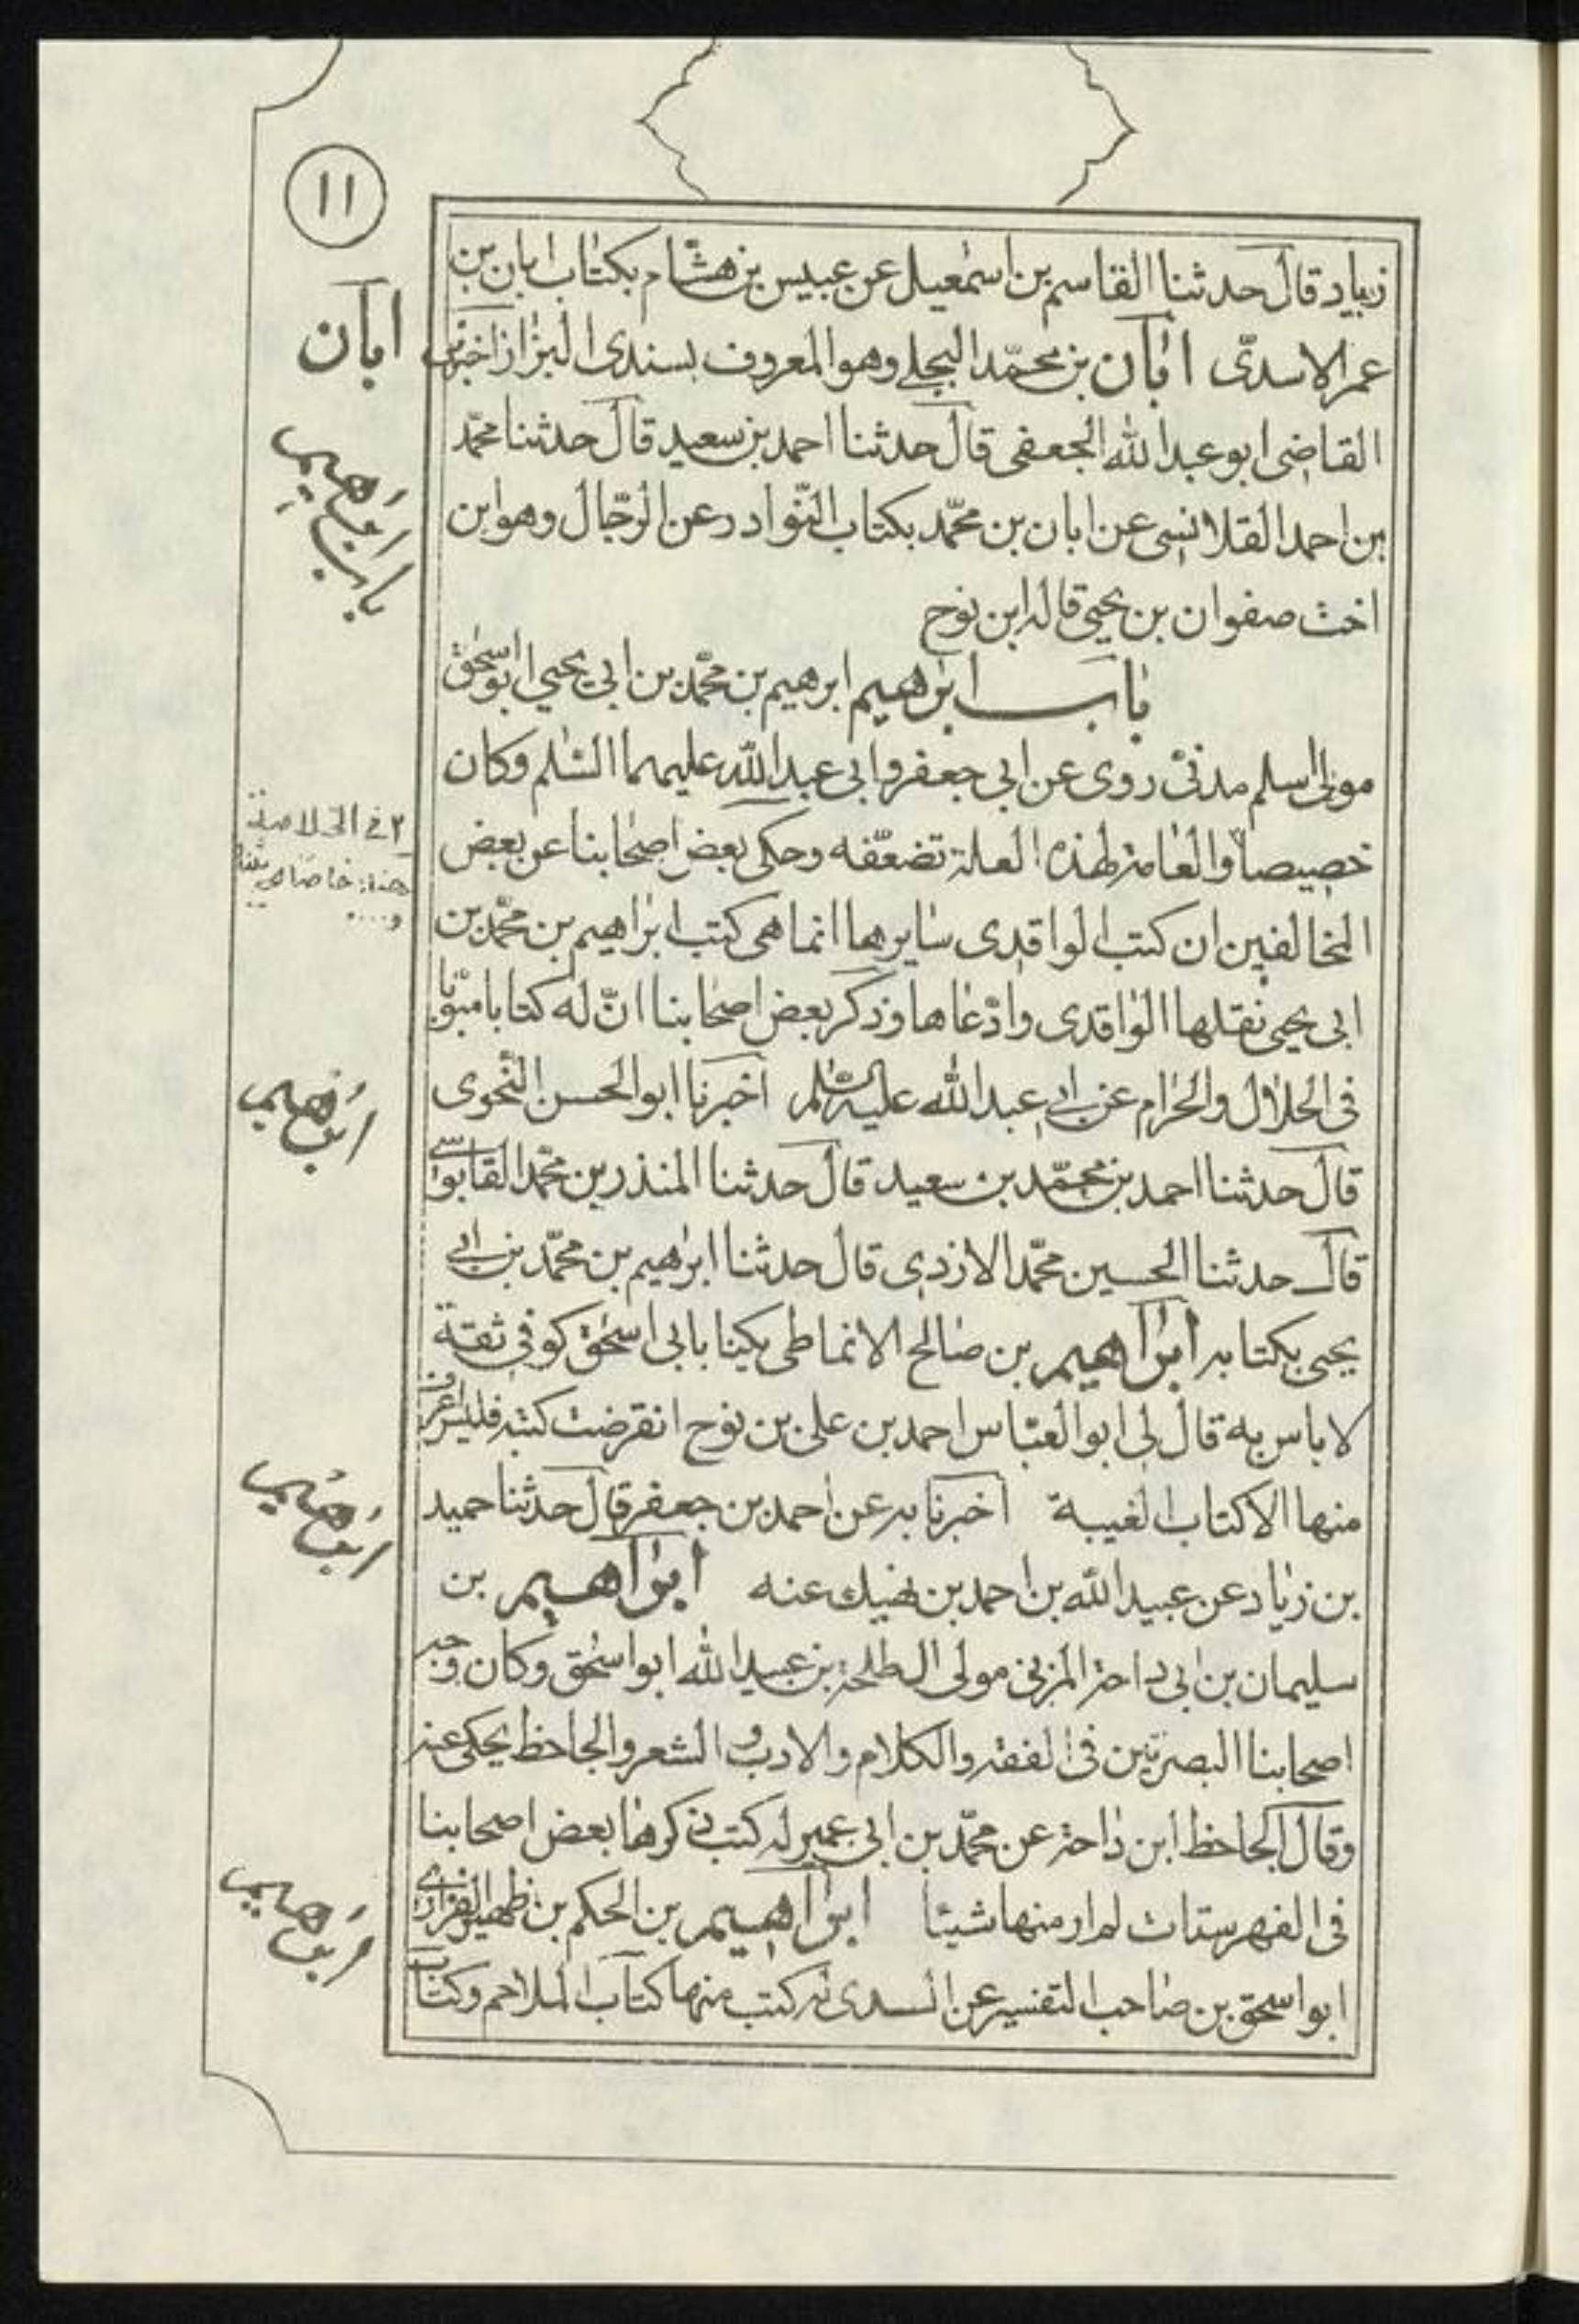 ١١
زياد قال حدثنا القاسم بن اسمعيل عن عبيس بن هشام بكتاب ابان بن
عمر الاسدى ابان بن محمّد البجلى وهو المعروف بسندى البزاز اخبرنى
القاضى ابو عبد الله الجعفى قال حدثنا احمد بن سعيد قال حدثنا محمّد
بن احمد القلانسى عن ابان بن محمّد بكتاب النّوادر عن الرّجال وهو ابن
اخت صفوان بن يحيى قاله ابن نوح
باب ابرهيم ابرهيم بن محمّد بن ابى يحيى ابو اسحق
مولى اسلم مدنىّ روى عن ابى جعفر وابى عبد الله عليهما السّلم وكان
خصيصاً والعامة لهذه العلة تضعّفه وحكى بعض اصحابنا عن بعض
المخالفين ان كتب الواقدى سايرها انما هى كتب ابراهيم بن محمّد بن
ابى يحيى نقلها الواقدى وادّعاها وذكر بعض اصحابنا انّ له كتابا مبوّبا
فى الحلال والحرام عن ابى عبد الله عليه السّلم اخبرنا ابو الحسن النّحوى
قال حدثنا احمد بن محمّد بن سعيد قال حدثنا المنذر بن محمّد القابوسى
قال حدثنا الحسين محمّد الازدى قال حدثنا ابرهيم بن محمّد بن ابى
يحيى بكتابه ابراهيم بن صالح الانماطى يكنا بابى اسحق كوفى ثقة
لا باس به قال لى ابو العبّاس احمد بن على بن نوح انقرضت كتبه فليس اعرف
منها الا كتاب الغيبة اخبرنا به عن احمد بن جعفر قال حدثنا حميد
بن زياد عن عبيد الله بن احمد بن نهيك عنه ابراهيم بن
سليمان بن ابى داحة المزنى مولى ال طلحة بن عبيد الله ابو اسحق وكان وجه
اصحابنا البصريّين فى الفقه والكلام والادب و الشعر والجاحظ يحكى عنه
وقال الجاحظ ابن داحة عن محمّد بن ابى عمير له كتب ذكرها بعض اصحابنا
فى الفهرستات لم ار منها شيئا ابراهيم بن الحكم بن ظهير الفزارى
ابو اسحق بن صاحب التفسير عن السدى له كتب منها كتاب الملاحم وكتاب
ابان
باب ابرهيم
٢ فى الخلاصة
هنا: خاصا
ابرهيم
ابرهيم
ابرهيم